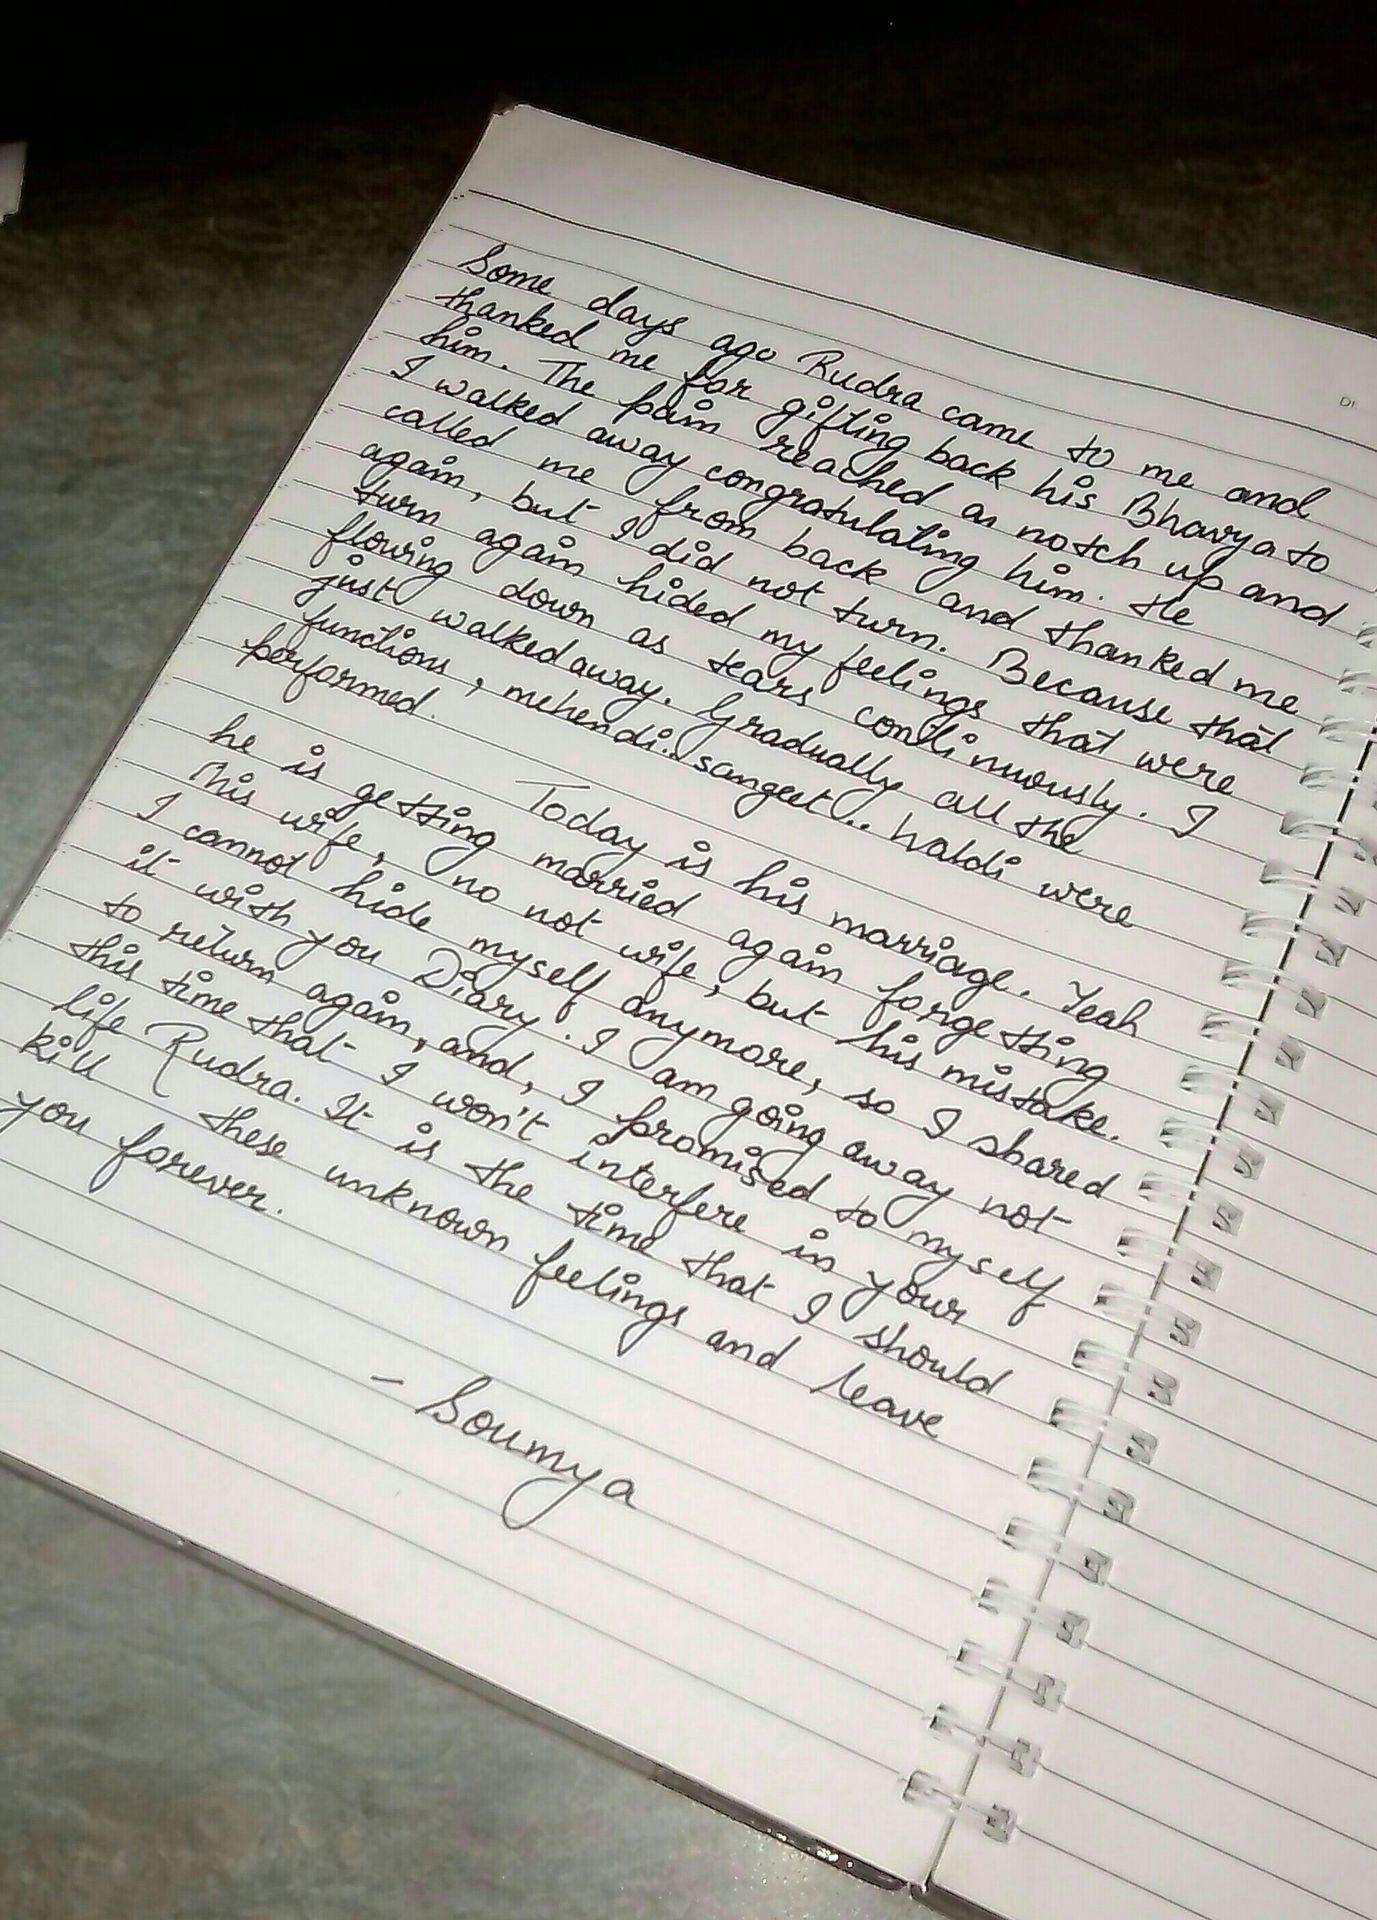 Some days ago Rudra came to me and
thanked me for gifting back his Bhavya to
him. The pain reached a notch up and
I walked away congratulating him. He
called me from back and thanked me
again, but I did not turn. Because that
turn again hided my feelings that were
flowing down as tears continuously. I
just walked away. Gradually all the
functions, mehendi.. sangeet.. haldi were
performed.
Today is his marriage. Yeah
he is getting married again forgetting
his wife, no not wife, but his mistake.
I cannot hide myself anymore, so I shared
it with you Diary. I am going away not
to return again, and, I promised to myself
this time that I won't interfere in your
life Rudra. It is the time that I should
kill these unknown feelings and leave
you forever.
- Soumya